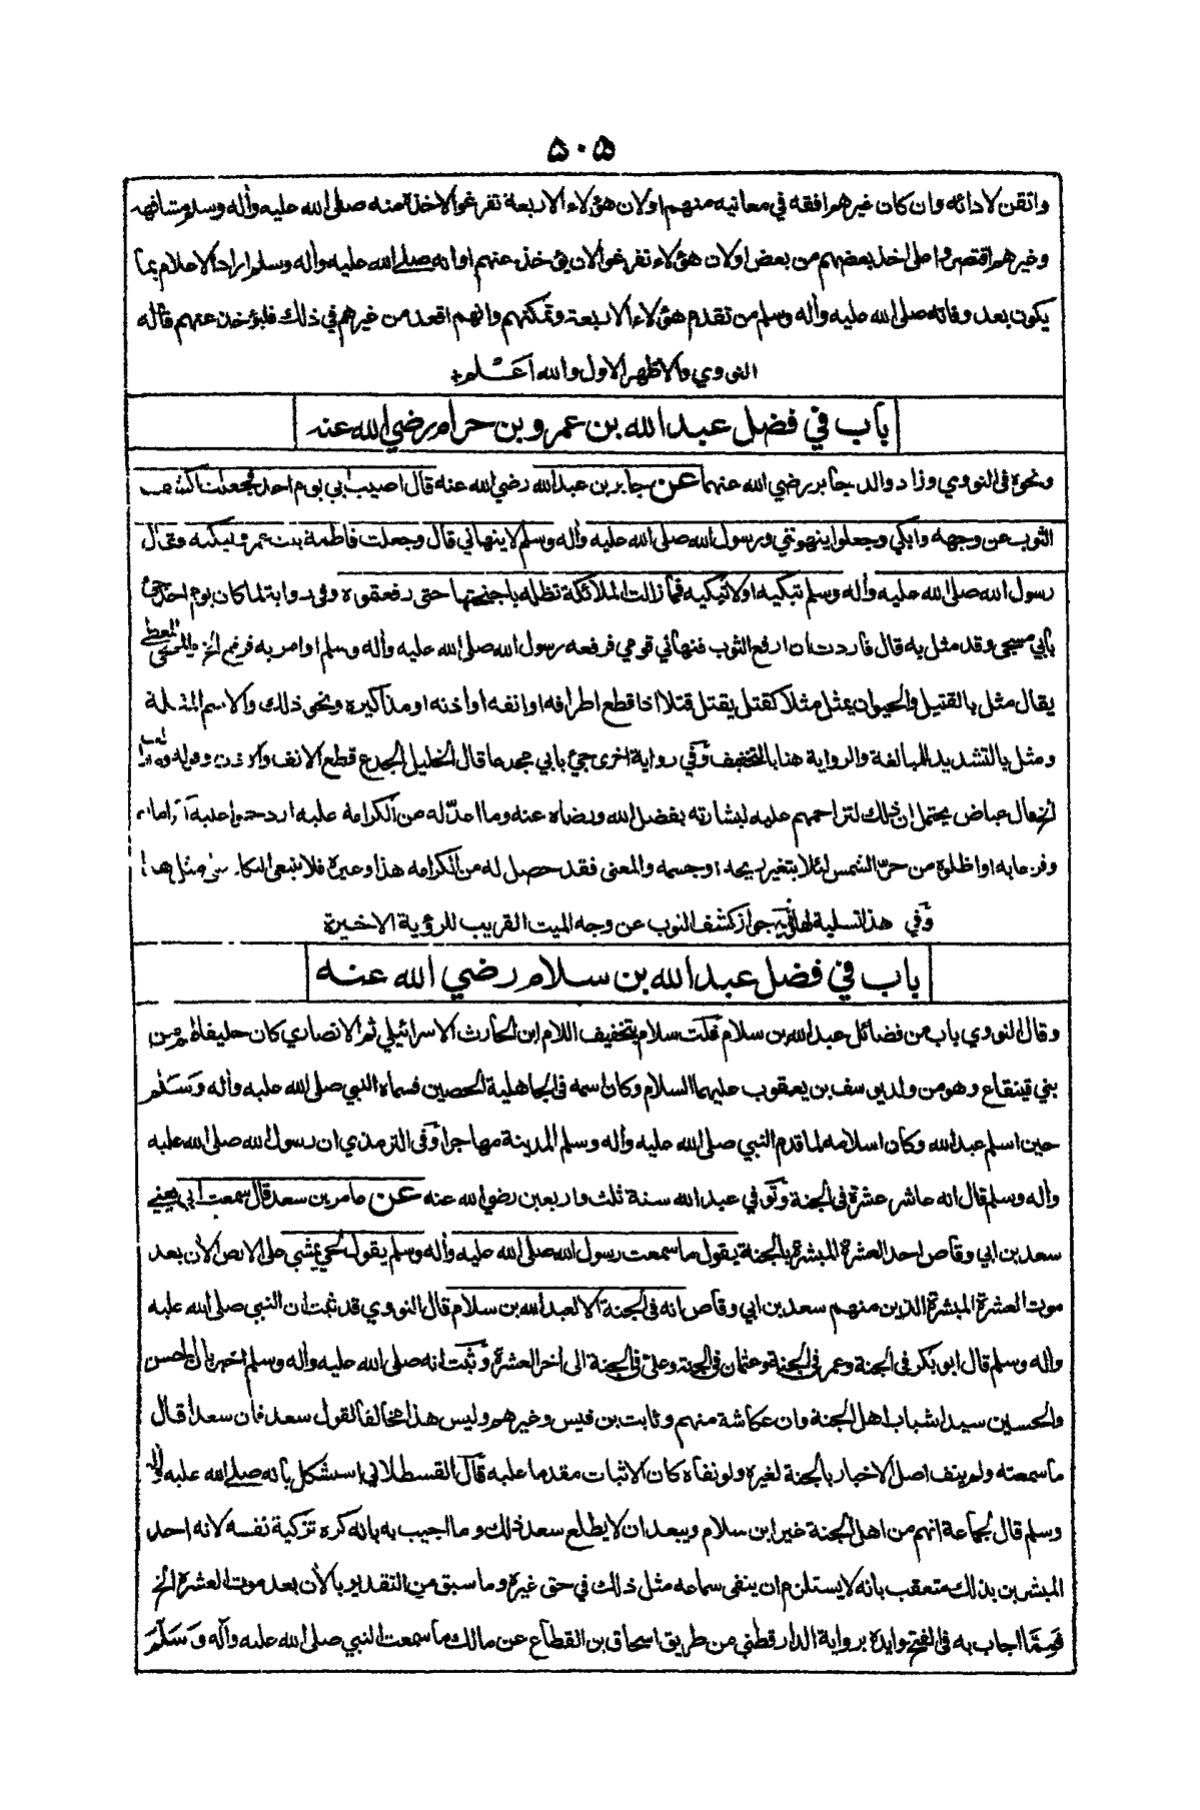 ٥٠٥
واتقن لادائه وان كان غيرهم افقه في معانيه منهم اولان هؤلاء الاربعة تفرغوا لاخذه منه صلى الله عليه وأله وسلم مشافهة
وغيرهم اقتصروا على اخذ بعضهم من بعض اولان هؤلاء تفرغوا لان يؤخذ عنهم اوانه صلى الله عليه وأله وسلم اراد الاعلام بما
يكون بعد وفاته صلى الله عليه وأله وسلم من تقدم هؤلاء الاربعة وتمكنهم وانهم اقعد من غيرهم في ذلك فليؤخذ عنهم قاله
النووي والاظهر الاول والله اعلم
باب في فضل عبد الله بن عمرو بن حرام رضي الله عنه
ونحوه في النووي وزاد والد جابر رضي الله عنهما عن جابر بن عبد الله رضي الله عنه قال اصيب ابي يوم احد فجعلت اكشف
الثوب عن وجهه وابكي وجعلوا ينهونني ورسول الله صلى الله عليه وأله وسلم لا ينهاني قال وجعلت فاطمة بنت عمرو تبكيه وقال
رسول الله صلى الله عليه وأله وسلم تبكيه اولا تبكيه فما زالت الملائكة تظله باجنحتها حتى رفعتموه وفي رواية لما كان يوم احد جئ
بأبي مسجى وقد مثل به قال فاردت ان ارفع الثوب فنهاني قومي فرفعه رسول الله صلى الله عليه وأله وسلم او امر به فرفع الخ المسجى المغطى
يقال مثل بالقتيل والحيوان يمثل مثلا كقتل يقتل قتلا اذا قطع اطرافه او انفه او اذنه او مذاكيره ونحو ذلك والاسم المثلة
ومثل بالتشديد للمبالغة والرواية هنا بالتخفيف وفي رواية اخرى جئ بابي مجدعا قال الخليل الجدع قطع الانف والاذن وقوله
الخ قال عياض يحتمل ان ذلك لتزاحمهم عليه لبشارته بفضل الله ورضاه عنه وما اعد له من الكرامة عليه ازدحموا عليه اكراما له
وفرحا به او اظلوه من حر الشمس لئلا يتغير ريحه او جسمه والمعنى فقد حصل له من الكرامه هذا وغيره فلا ينبغي البكاء على مثل هذا
وفي هذا تسلية لها وفيه جواز كشف الثوب عن وجه الميت القريب للرؤية الاخيرة
باب في فضل عبد الله بن سلام رضي الله عنه
وقال النووي باب من فضائل عبد الله بن سلام قلت سلام بتخفيف اللام ابن الحارث الاسرائيلي ثم الانصاري كان حليفا لهم من
بني قينقاع وهو من ولد يوسف بن يعقوب عليهما السلام وكان اسمه في الجاهلية الحصين فسماه النبي صلى الله عليه وأله وسلم
حين اسلم عبد الله وكان اسلامه لما قدم النبي صلى الله عليه وأله وسلم المدينة مهاجرا وفي الترمذي ان رسول الله صلى الله عليه
وأله وسلم قال انه عاشر عشرة في الجنة وتوفي عبد الله سنة ثلث واربعين رضي الله عنه عن عامر بن سعد قال سمعت ابي يعني
سعد بن ابي وقاص احد العشرة المبشرة بالجنة يقول ما سمعت رسول الله صلى الله عليه وأله وسلم يقول لحي يمشي على الارض الأن بعد
موت العشرة المبشرة الذين منهم سعد بن ابي وقاص انه في الجنة الا لعبد الله بن سلام قال النووي قد ثبت ان النبي صلى الله عليه
وأله وسلم قال ابو بكر في الجنة وعمر في الجنة وعثمان في الجنة وعلي في الجنة الى أخر العشرة وثبت انه صلى الله عليه وأله وسلم اخبر بان الحسن
والحسين سيدا شباب اهل الجنة وان عكاشة منهم وثابت بن قيس وغيرهم وليس هذا مخالفا لقول سعد فان سعدا قال
ما سمعته ولم ينف اصل الاخبار بالجنة لغيره ولو نفاه كان الاثبات مقدما عليه قال القسطلاني استشكل بأنه صلى الله عليه وأله
وسلم قال لجماعة انهم من اهل الجنة غير ابن سلام ويبعد ان لا يطلع سعد ذلك وما اجيب به بانه كره تزكية نفسه لانه احد
المبشرين بذلك متعقب بانه لا يستلزم ان ينفي سماعه مثل ذلك في حق غيره وما سبق من التقدير بالأن بعد موت العشرة الخ
فمما اجاب به في الفتح وايده برواية الدارقطني من طريق اسحاق بن الطباع عن مالك ما سمعت النبي صلى الله عليه وأله وسلم